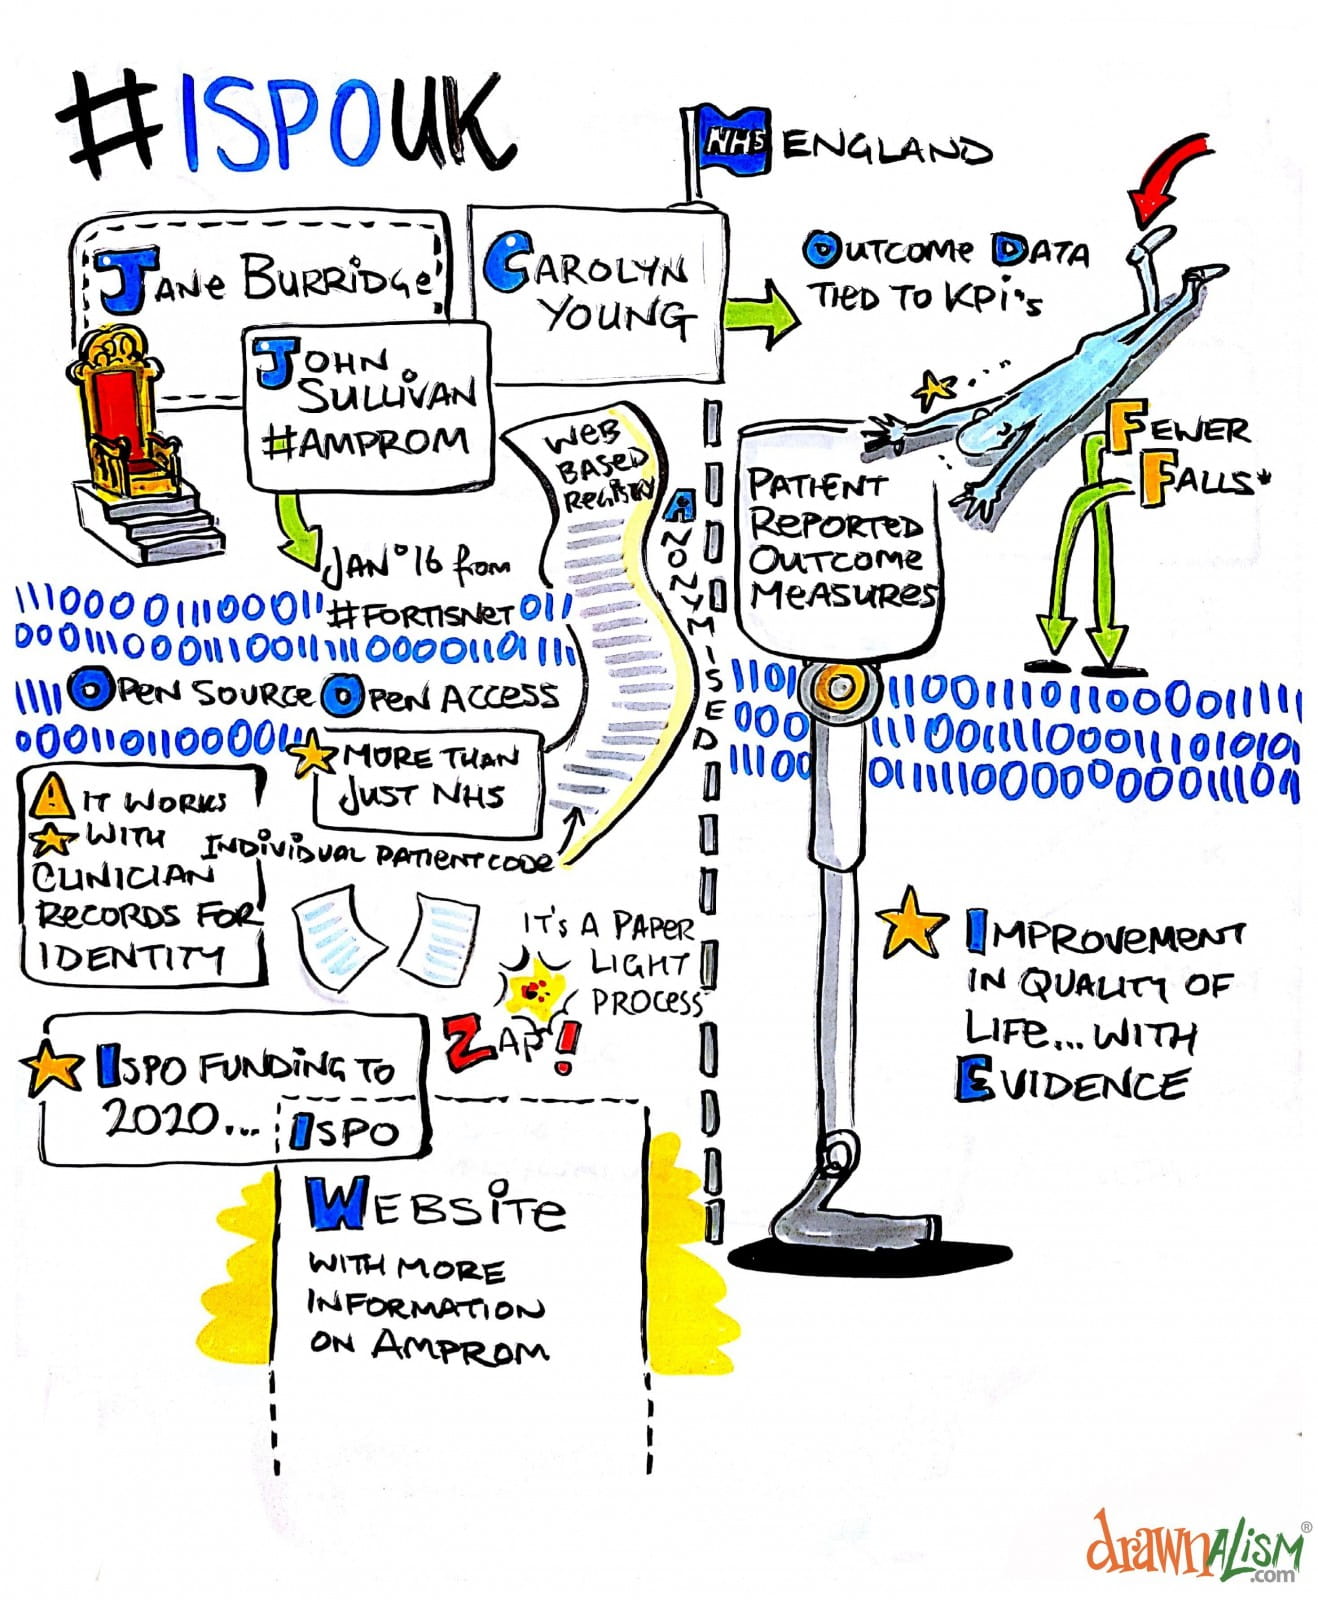 #ISPOUK
NHS ENGLAND
JANE BURRIDGE
JOHN
SULLIVAN
#AMPROM
CAROLYN
YOUNG
OUTCOME DATA
TIED TO KPI's
FEWER
FALLS*
PATIENT
REPORTED
OUTCOME
MEASURES
WEB
BASED
REGISTRY
ANONYMISED
JAN '16 from
#FORTISNET 011
11100001110001
00011100011100111111000011 01 111
1111 OPEN SOURCE OPEN ACCESS
0000110110000111
MORE THAN
JUST NHS
IT WORKS
WITH
CLINICIAN
RECORDS FOR
IDENTITY
INDIVIDUAL PATIENT CODE
IT'S A PAPER
LIGHT
PROCESS
ZAP!
ISPO FUNDING TO
2020...
ISPO
WEBSITE
WITH MORE
INFORMATION
ON AMPROM
IMPROVEMENT
IN QUALITY OF
LIFE... WITH
EVIDENCE
drawnALISM®
.com